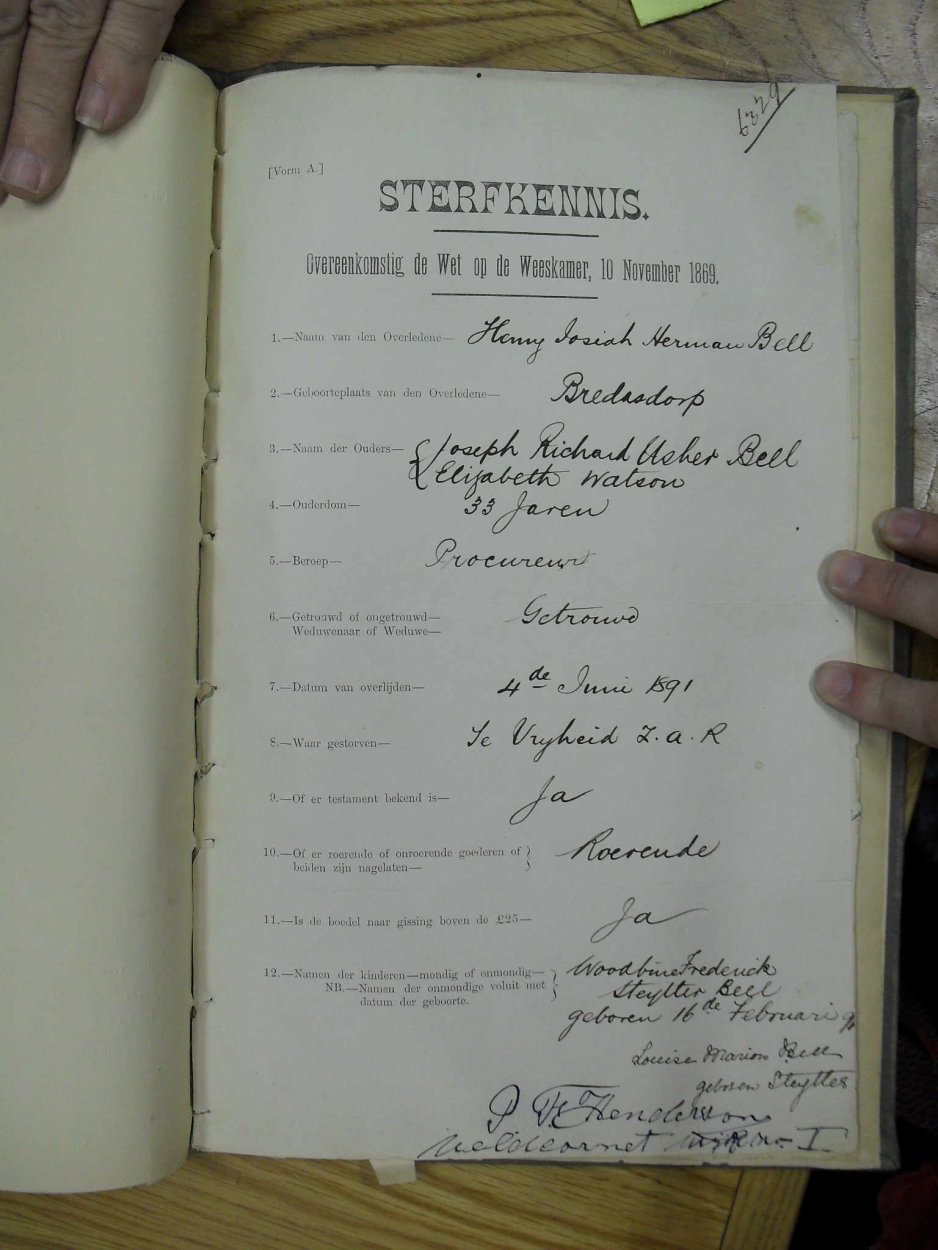 6329
[Vorm A.]
STERFKENNIS.
Overeenkomstig de Wet op de Weeskamer, 10 November 1869.
1.—Naam van den Overledene— Henry Josiah Herman Bell
2.—Geboorteplaats van den Overledene— Bredasdorp
3.—Naam der Ouders— { Joseph Richard Usher Bell
Elizabeth Watson
4.—Ouderdom— 33 Jaren
5.—Beroep— Procureur
6.—Getrouwd of ongetrouwd— Getrouwd
Weduwenaar of Weduwe—
7.—Datum van overlijden— 4de Juni 1891
8.—Waar gestorven— Te Vryheid Z.A.R
9.—Of er testament bekend is— Ja
10.—Of er roerende of onroerende goederen of } Roerende
beiden zijn nagelaten—
11.—Is de boedel naar gissing boven de £25— Ja
12.—Namen der kinderen—mondig of onmondig— } Woodbine Frederick
NB.—Namen der onmondige voluit met Steytler Bell
datum der geboorte. geboren 16de Februari
Louise Marion Bell
geboren Steytler
P Henderson
Veldcornet Wijk No. I